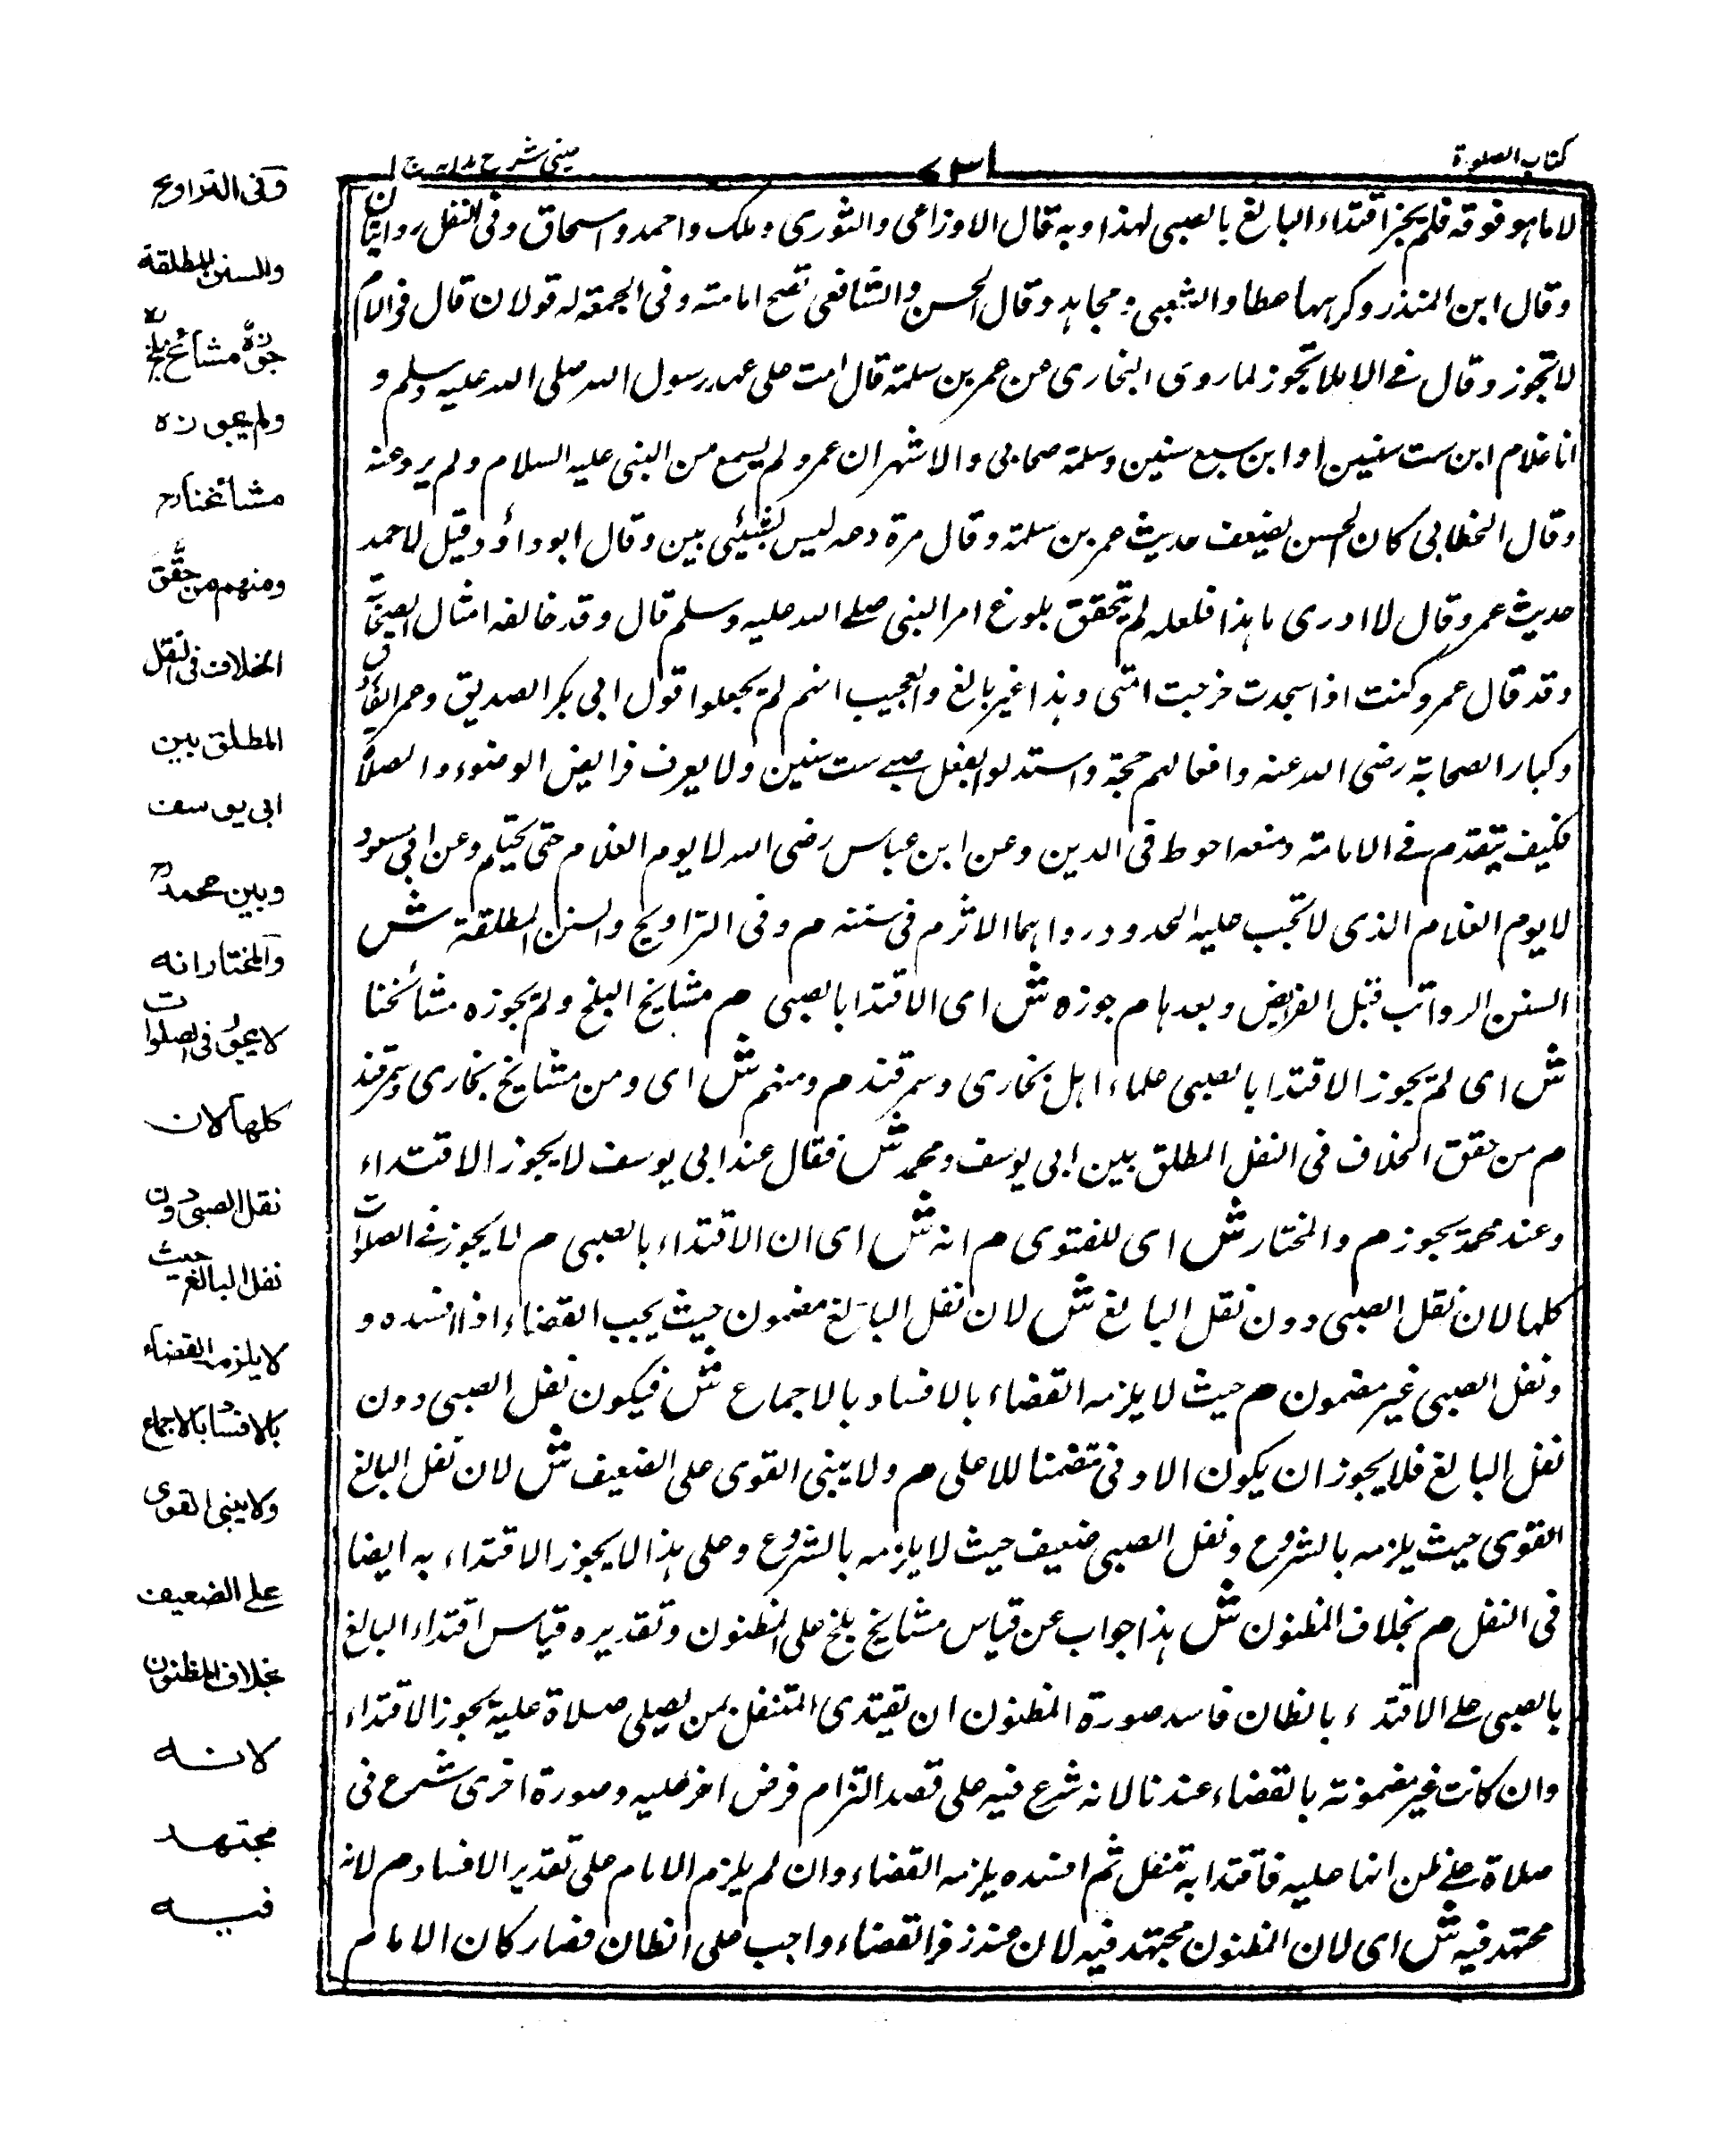 كتاب الصلوة
٧٣١
عينى شرح هدايه ج ١
لا ما هو فوقه فلم يجز اقتداء البالغ بالصبى لهذا وبه قال الاوزاعى والثورى وملك واحمد واسحاق وفى النفل روايتان
وقال ابن المنذر وكرهها عطا والشعبى ومجاهد وقال الحسن والشافعى تصح امامته وفى الجمعة له قولان قال فى الام
لا تجوز وقال فى الاملا تجوز لما روى البخارى عن عمر بن سلمة قال امت على عهد رسول الله صلى الله عليه وسلم و
انا غلام ابن ست سنين او ابن سبع سنين وسلمة صحابى والاشهر ان عمرو لم يسمع من النبى عليه السلام ولم يرو عنه
وقال الخطابى كان الحسن يضيعف حديث عمر بن سلمة وقال مرة دعه ليس بشيئى بين وقال ابو داؤد قيل لاحمد
حديث عمرو قال لا ادرى ما هذا فلعله لم يتحقق بلوغ امر النبى صلے الله عليه وسلم قال وقد خالفه امثال الصحابة
وقد قال عمرو كنت اذا سجدت خرجت استى وهذا غير بالغ والعجيب انهم لم يجعلوا قول ابى بكر الصديق وعمر الفاروق
وكبار الصحابة رضى الله عنه وافعالهم حجة واستدلوا بفعل صبے ست سنين ولا يعرف فرايض الوضوء والصلاة
فكيف يتقدم فے الامامة ومنعه احوط فى الدين وعن ابن عباس رضى الله لا يوم الغلام حتى يحتلم وعن ابى مسعود
لا يوم الغلام الذى لا تجب عليه الحدود رواهما الاثرم فى سننه م وفى التراويح والسنن المطلقة ش
السنن الرواتب قبل الفرايض وبعدها م جوزه ش اى الاقتدا بالصبى م مشايخ البلخ ولم يجوزه مشائخنا
ش اى لم يجوز الاقتدا بالصبى علماء اهل بخارى وسمرقند م ومنهم ش اى ومن مشايخ بخارى وسمرقند
م من حقق الخلاف فى النفل المطلق بين ابى يوسف ومحمد ش فقال عند ابى يوسف لا يجوز الاقتداء
وعند محمد يجوز م والمختار ش اى للفتوى م انه ش اى ان الاقتداء بالصبى م لا يجوز فے الصلوات
كلها لان نفل الصبى دون نفل البالغ ش لان نفل البالغ مضمون حيث يجب القضاء اذا افسده و
ونفل الصبى غير مضمون م حيث لا يلزمه القضاء بالافساد بالاجماع ش فيكون نفل الصبى دون
نفل البالغ فلا يجوز ان يكون الادنى متضمنا للاعلى م ولا يبنى القوى على الضعيف ش لان نفل البالغ
القوى حيث يلزمه بالشروع ونفل الصبى ضعيف حيث لا يلزمه بالشروع وعلى هذا لا يجوز الاقتداء به ايضا
فى النفل م بخلاف المظنون ش هذا جواب عن قياس مشايخ بلخ على المظنون وتقديره قياس اقتداء البالغ
بالصبى علے الاقتداء بالظان فاسد صورة المظنون ان يقتدى المتنفل بمن يصلى صلاة عليه يجوز الاقتداء
وان كانت غير مضمونة بالقضاء عندنا لانه شرع فيه على قصد التزام فرض اخر عليه وصورة اخرى شرع فى
صلاة علے ظن انها عليه فاقتدا به متنفل ثم افسده يلزمه القضاء وان لم يلزم الامام على تقدير الافساد م لانه
مجتهد فيه ش اى لان المظنون مجتهد فيه لان عند زفر القضاء واجب على الظان فصار كان الامام
وفى التراويح
والسنن المطلقة
جوزه مشائخ بلخ
ولم يجوزه
مشائخنا
ومنهم من حقق
الخلاف فى النفل
المطلق بين
ابى يوسف
وبين محمد
والمختار انه
لا يجوز فى الصلوات
كلها لان
نفل الصبى دون
نفل البالغ حيث
لا يلزمه القضاء
بالافساد بالاجماع
ولا يبنى القوى
على الضعيف
بخلاف المظنون
لانه
مجتهد
فيه